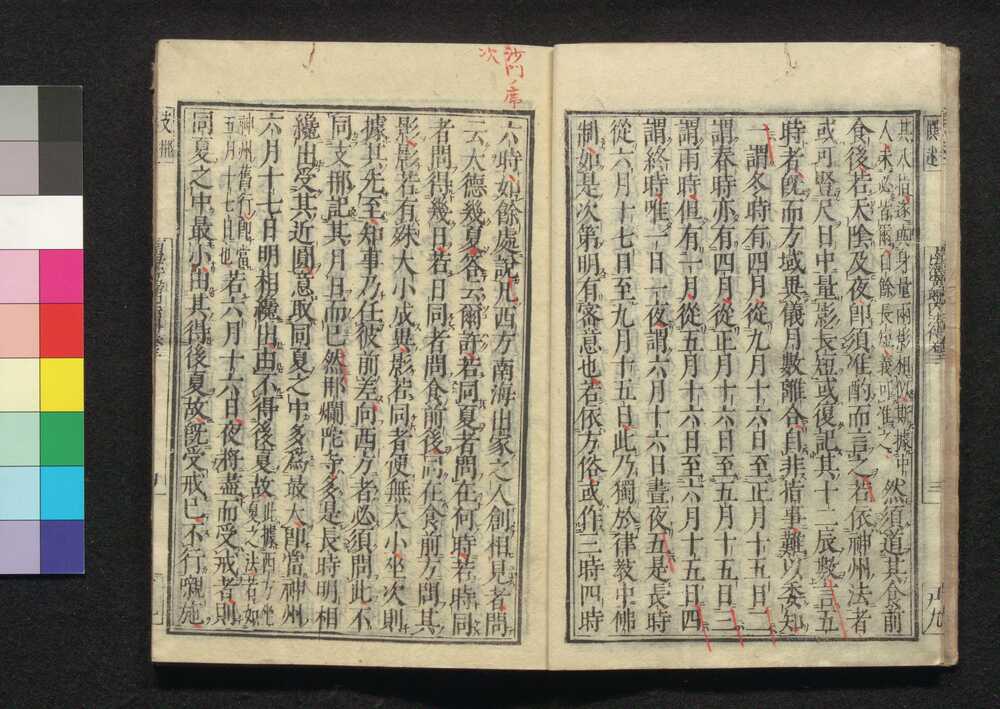 其人指逐西身量兩影相似斯據中
人未必皆爾自餘長短義可准之
然須道其食前
食後若天陰及夜即須准酌而言之若依神州法者
或可豎尺日中量影長短或復記其十二辰數言五
時者既而方域異儀月數離合自非指事難以委知
一謂冬時有四月從九月十六日至正月十五日二
謂春時亦有四月從正月十六日至五月十五日三
謂雨時但有一月從五月十六日至六月十五日四
謂終時唯一日一夜謂六月十六日晝夜五是長時
從六月十七日至九月十五日此乃獨於律教中佛
制如是次第明有密意也若依方俗或作三時四時
六時如餘處說凡西方南海出家之人創相見者問
云大德幾夏答云爾許若同夏者問在何時若時同
者問得幾日若日同者問食前後同在食前方問其
影影若有殊大小成異影若同者便無大小坐次則
據其先至知事乃任彼前差向西方者必須問此不
同支那記其月日而已然那爛陀寺多是長時明相
纔出受其近圓意取同夏之中多為最大即當神州
六月十七日明相纔出由不得後夏故
此據西方坐夏之法若如
神州舊行即當
五月十七日也
若六月十六日夜將盡而受戒者則
同夏之中最小由其得後夏故既受戒已不行䞋施
沙門ノ席次